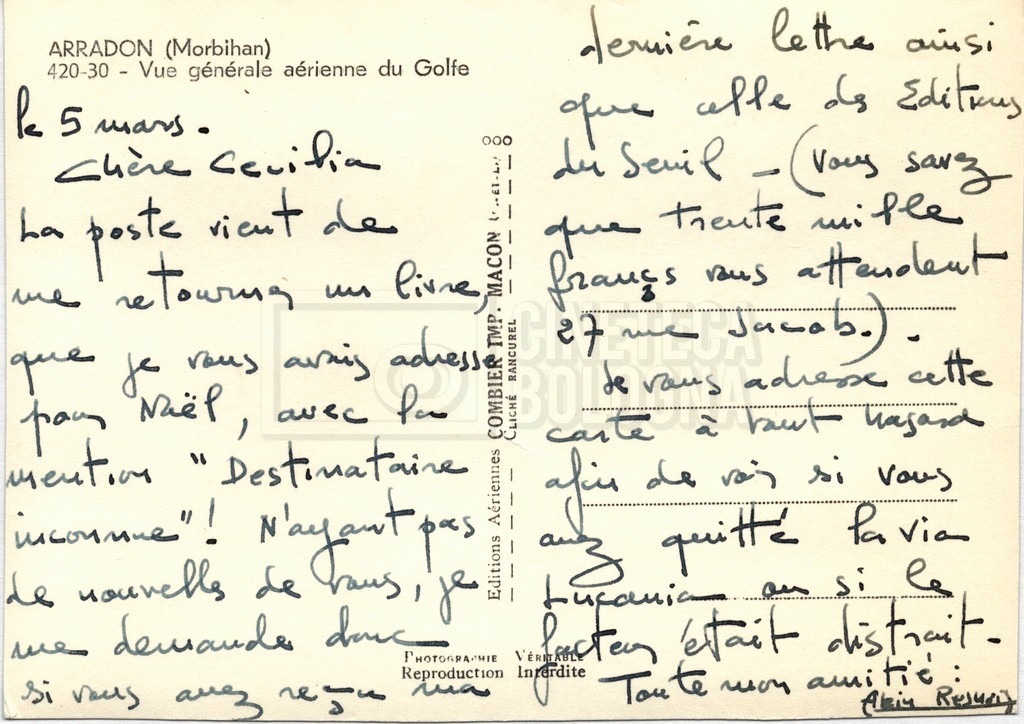 ARRADON (Morbihan)
420-30 - Vue générale aérienne du Golfe
le 5 mars.
Chère Cecilia
La poste vient de
me retourner un livre,
que je vous avais adressé
pour Noël, avec la
mention "Destinataire
inconnue"! N'ayant pas
de nouvelles de vous, je
me demande donc
si vous avez reçu ma
dernière lettre ainsi
que celle des Editions
du Seuil - (vous savez
que trente mille
francs vous attendent
27 rue Jacob.).
Je vous adresse cette
carte à tout hasard
afin de voir si vous
avez quitté la via
Lucania ou si le
facteur était distrait.
Toute mon amitié :
Alain Resnais
Editions Aériennes COMBIER IMP. MACON
CLICHÉ RANCUREL
PHOTOGRAPHIE VÉRITABLE
Reproduction Interdite
CINETECA
BOLOGNA